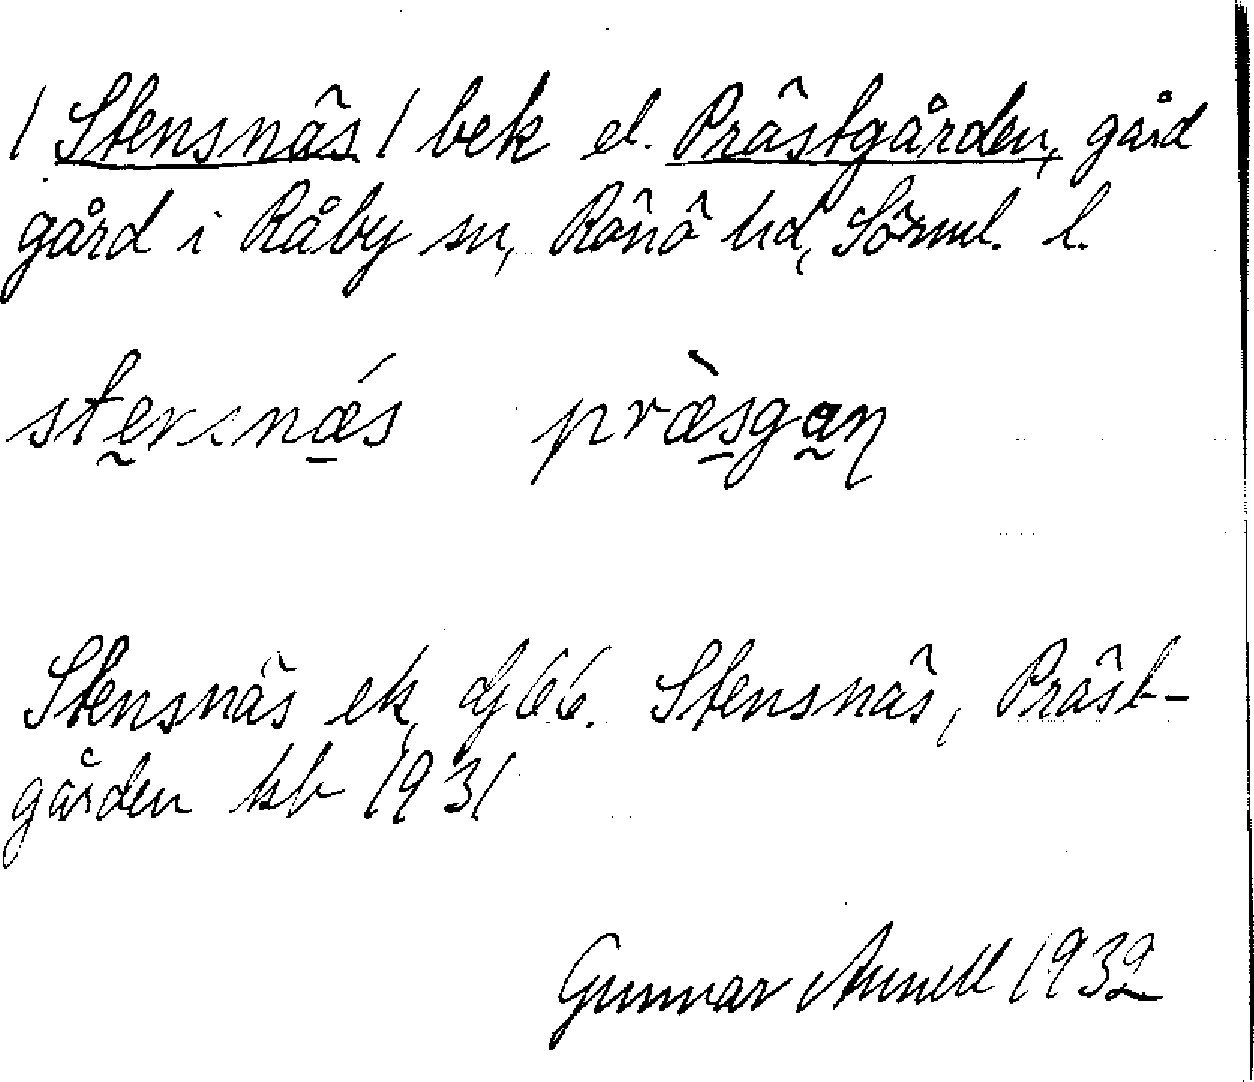 / Stensnäs / bek el. Prästgården, gård
gård i Råby sn, Rönö hd, Sörml. l.
stensnǽs præ̀sgaɳ
Stensnäs ek, dj 66. Stensnäs, Präst-
gården kb 1931
Gunnar Annell 1932